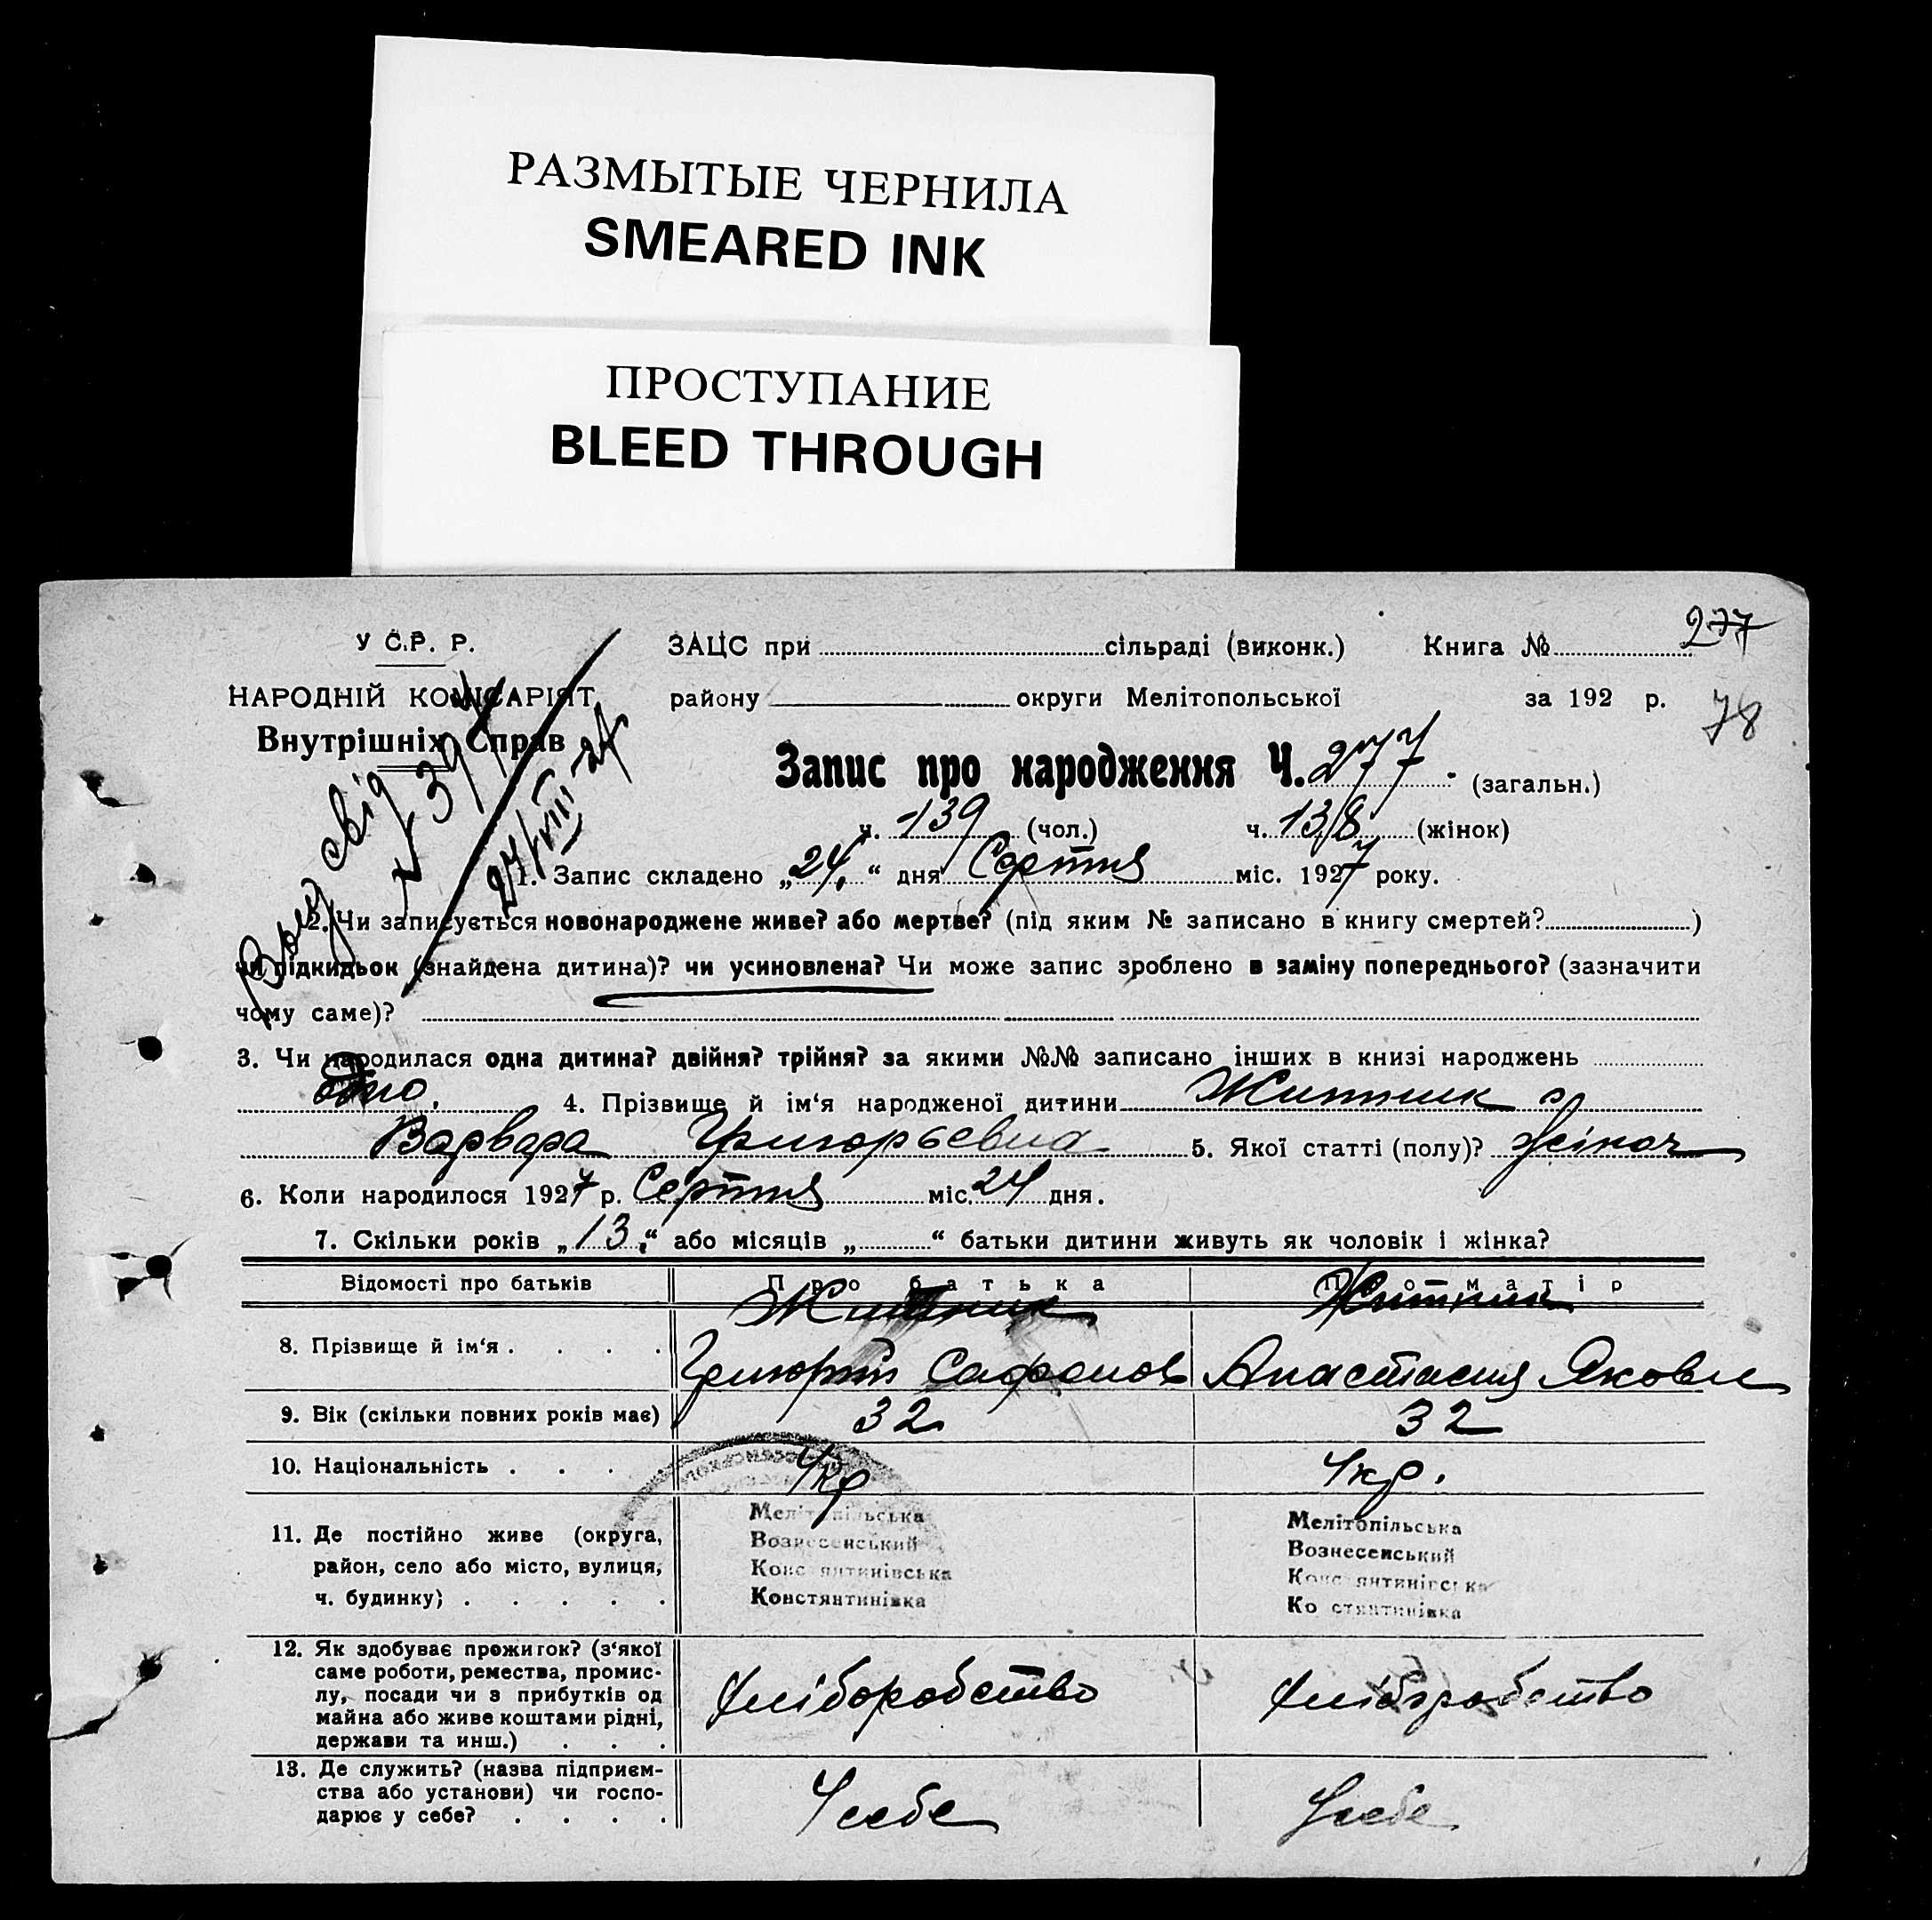 РАЗМЫТЫЕ ЧЕРНИЛА
SMEARED INK
ПРОСТУПАНИЕ
BLEED THROUGH
277
У С.Р. Р.
ЗАЦС при сільраді (виконк.) Книга №
НАРОДНІЙ КОМІСАРІЯТ
району округи Мелітопольської за 192 р.
78
Внутрішніх Справ
Запис про народження Ч. 277 (загальн.)
ч. 139 (чол.) ч. 138 (жінок)
1. Запис складено „24.“ дня Серпня міс. 1927 року.
2. Чи записується новонароджене живе? або мертве? (під яким № записано в книгу смертей? )
чи підкидьок (знайдена дитина)? чи усиновлена? Чи може запис зроблено в заміну попереднього? (зазначити
чому саме)?
3. Чи народилася одна дитина? двійня? трійня? за якими №№ записано інших в книзі народжень
одно. 4. Прізвище й ім‘я народженої дитини Житник
Варвара Григорьевна 5. Якої статті (полу)? жіноч
6. Коли народилося 1927 р. Серпня міс. 24 дня.
7. Скільки років „13.“ або місяців „ “ батьки дитини живуть як чоловік і жінка?
Відомості про батьків Про батька Про матір
Житник Житник
8. Прізвище й ім‘я . . . . Григорій Сафонов Анастасия Яковл
9. Вік (скільки повних років має) 32 32
10. Національність . . . Укр Укр.
11. Де постійно живе (округа, район, село або місто, вулиця, ч. будинку) . . . . .
Мелітопільська Мелітопільська
Вознесенський Вознесенський
Констянтинівська Констянтинівська
Констянтинівка Констянтинівка
12. Як здобуває прожиток? (з‘якої
саме роботи, ремества, промис-
лу, посади чи з прибутків од
майна або живе коштами рідні,
держави та инш.) . . .
хліборобство хліборобство
13. Де служить? (назва підприєм-
ства або установи) чи госпо-
дарює у себе? . . . .
У себе У себе